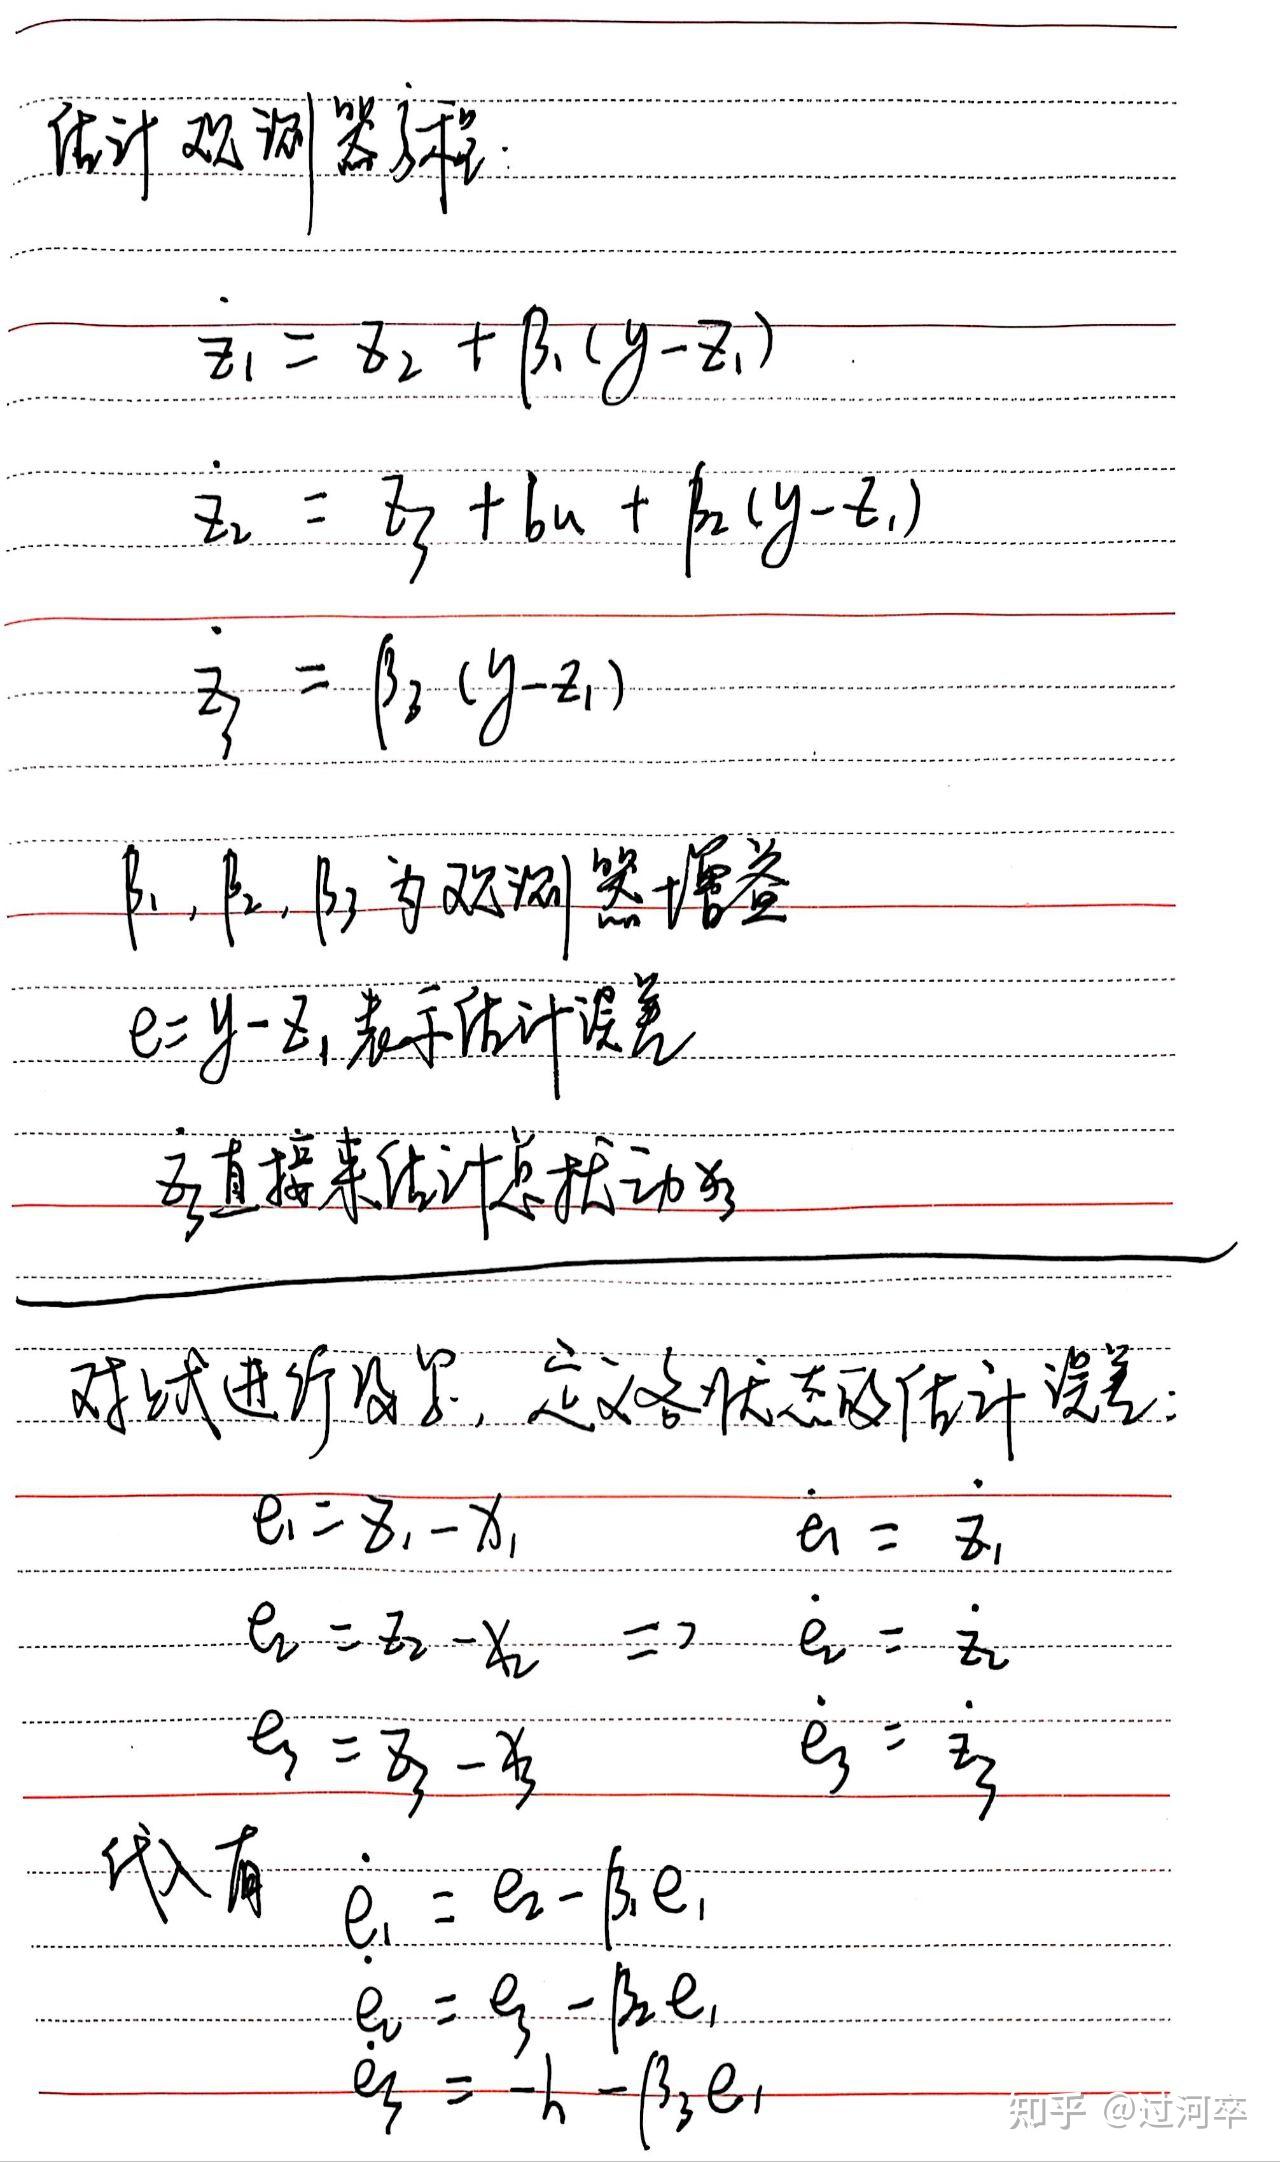 估计观测器方程:
ż₁ = z₂ + β₁(y-z₁)
ż₂ = z₃ + bu + β₂(y-z₁)
ż₃ = β₃(y-z₁)
β₁, β₂, β₃为观测器增益
e=y-z₁表示估计误差
ż₃直接来估计总扰动x₃
对上式进行,定义各状态的估计误差:
e₁=z₁-x₁ ė₁ = ż₁
e₂ = z₂-x₂ => ė₂ = ż₂
e₃ = z₃-x₃ ė₃ = ż₃
代入有 ė₁ = e₂-β₁e₁
ė₂ = e₃-β₂e₁
ė₃ = -h-β₃e₁
知乎 @过河卒